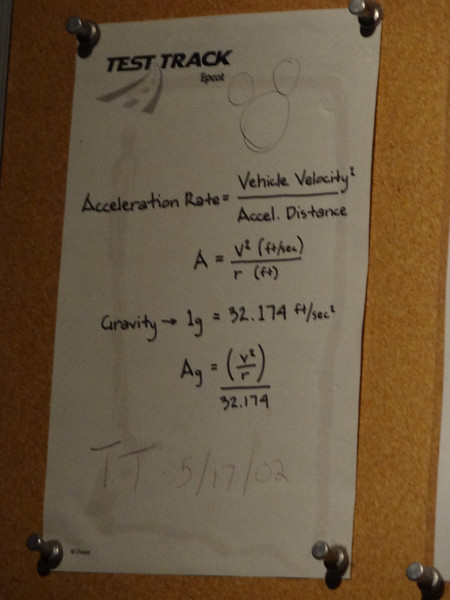 TEST TRACK
Epcot
Acceleration Rate = Vehicle Velocity² / Accel. Distance
A = V² (ft/sec) / r (ft)
Gravity → 1g = 32.174 ft/sec²
Ag = (V²/r) / 32.174
TT 5/17/02
© Disney